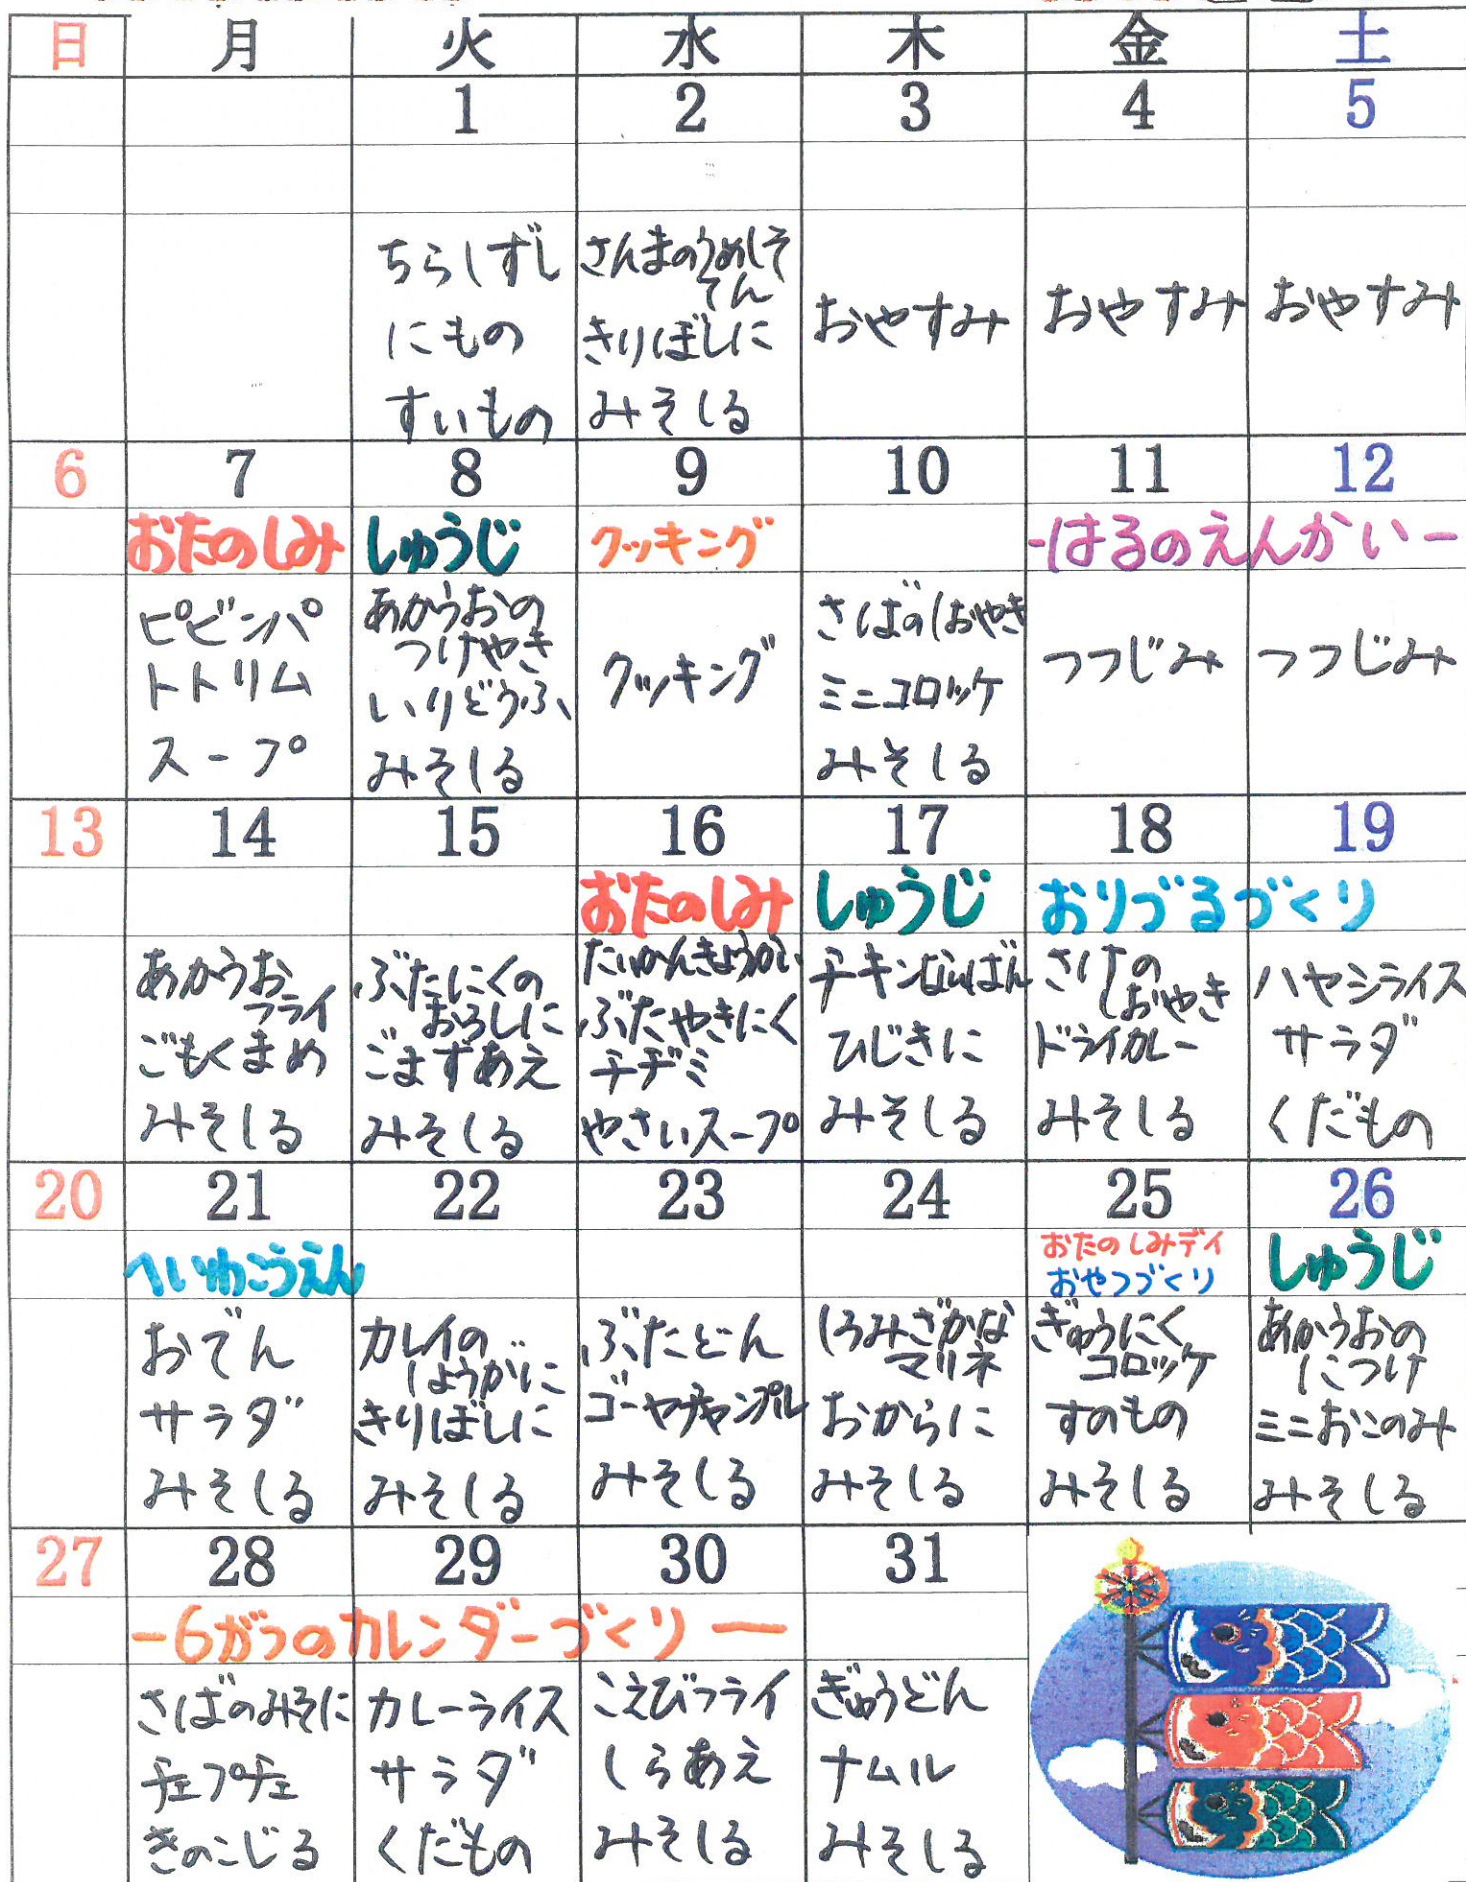 日 月 火 水 木 金 土
1 2 3 4 5
ちらしずし
にもの
すいもの
さんまのうめしそ
てん
きりぼしに
みそしる
おやすみ
おやすみ
おやすみ
6 7 8 9 10 11 12
おたのしみ しゅうじ クッキング -はるのえんかい-
ピビンパ
トトリム
スープ
あかうおの
つけやき
いりどうふ
みそしる
クッキング
さばのしおやき
ミニコロッケ
みそしる
つつじみ
つつじみ
13 14 15 16 17 18 19
おたのしみ しゅうじ おりづるづくり
あかうお
フライ
ごもくまめ
みそしる
ぶたにくの
おろしに
ごまずあえ
みそしる
たいかんきょうかい
ぶたやきにく
チヂミ
やさいスープ
チキンなんばん
ひじきに
みそしる
さけの
しおやき
ドライカレー
みそしる
ハヤシライス
サラダ
くだもの
20 21 22 23 24 25 26
へいわこうえん
おたのしみデイ
おやつづくり
しゅうじ
おでん
サラダ
みそしる
カレイの
しょうがに
きりぼしに
みそしる
ぶたどん
ゴーヤチャンプル
みそしる
しろみざかな
マリネ
おからに
みそしる
ぎゅうにく
コロッケ
すのもの
みそしる
あかうおの
につけ
ミニおこのみ
みそしる
27 28 29 30 31
-6がつのカレンダーづくり-
さばのみそに
チェプチェ
きのこじる
カレーライス
サラダ
くだもの
こえびフライ
しらあえ
みそしる
ぎゅうどん
ナムル
みそしる